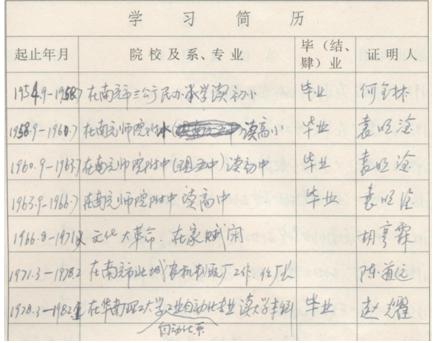 学习简历
起止年月 院校及系、专业 毕(结、肄)业 证明人
1954.9-1958.7 在南京市三公行民办小学读初小 毕业 何金林
1958.9-1960.7 在南京师院附小 读高小 毕业 袁旺淦
1960.9-1963.7 在南京师院附中 读初中 毕业 袁旺淦
1963.9-1966.7 在南京师院附中读高中 毕业 袁旺淦
1966.8-1971.2 文化大革命 在家赋闲 胡亨霖
1971.3-1978.2 在南京市北城有机制版厂工作,任厂长 陈道远
1978.3-1982.1 在华南工大学工业自动化专业读大学本科 毕业 赵耀
自动化系